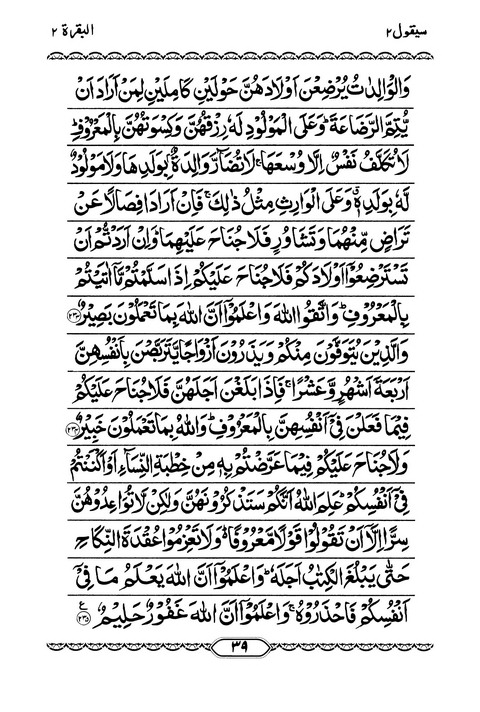 سيقول٢ البقرة ٢
وَالْوَالِدٰتُ يُرْضِعْنَ اَوْلَادَهُنَّ حَوْلَيْنِ كَامِلَيْنِ لِمَنْ اَرَادَ اَنْ
يُّتِمَّ الرَّضَاعَةَ ؕ وَعَلَى الْمَوْلُوْدِ لَهٗ رِزْقُهُنَّ وَكِسْوَتُهُنَّ بِالْمَعْرُوْفِ ؕ
لَا تُكَلَّفُ نَفْسٌ اِلَّا وُسْعَهَا ۚ لَا تُضَآرَّ وَالِدَةٌۢ بِوَلَدِهَا وَلَا مَوْلُوْدٌ
لَّهٗ بِوَلَدِهٖ ۗ وَعَلَى الْوَارِثِ مِثْلُ ذٰلِكَ ۚ فَاِنْ اَرَادَا فِصَالًا عَنْ
تَرَاضٍ مِّنْهُمَا وَتَشَاوُرٍ فَلَا جُنَاحَ عَلَيْهِمَا ؕ وَاِنْ اَرَدْتُّمْ اَنْ
تَسْتَرْضِعُوْٓا اَوْلَادَكُمْ فَلَا جُنَاحَ عَلَيْكُمْ اِذَا سَلَّمْتُمْ مَّآ اٰتَيْتُمْ
بِالْمَعْرُوْفِ ؕ وَاتَّقُوا اللّٰهَ وَاعْلَمُوْٓا اَنَّ اللّٰهَ بِمَا تَعْمَلُوْنَ بَصِيْرٌ ﴿٢٣٣﴾
وَالَّذِيْنَ يُتَوَفَّوْنَ مِنْكُمْ وَيَذَرُوْنَ اَزْوَاجًا يَّتَرَبَّصْنَ بِاَنْفُسِهِنَّ
اَرْبَعَةَ اَشْهُرٍ وَّعَشْرًا ۚ فَاِذَا بَلَغْنَ اَجَلَهُنَّ فَلَا جُنَاحَ عَلَيْكُمْ
فِيْمَا فَعَلْنَ فِيْٓ اَنْفُسِهِنَّ بِالْمَعْرُوْفِ ؕ وَاللّٰهُ بِمَا تَعْمَلُوْنَ خَبِيْرٌ ﴿٢٣٤﴾
وَلَا جُنَاحَ عَلَيْكُمْ فِيْمَا عَرَّضْتُمْ بِهٖ مِنْ خِطْبَةِ النِّسَآءِ اَوْ اَكْنَنْتُمْ
فِيْٓ اَنْفُسِكُمْ ؕ عَلِمَ اللّٰهُ اَنَّكُمْ سَتَذْكُرُوْنَهُنَّ وَلٰكِنْ لَّا تُوَاعِدُوْهُنَّ
سِرًّا اِلَّآ اَنْ تَقُوْلُوْا قَوْلًا مَّعْرُوْفًا ؕ وَلَا تَعْزِمُوْا عُقْدَةَ النِّكَاحِ
حَتّٰى يَبْلُغَ الْكِتٰبُ اَجَلَهٗ ؕ وَاعْلَمُوْٓا اَنَّ اللّٰهَ يَعْلَمُ مَا فِيْٓ
اَنْفُسِكُمْ فَاحْذَرُوْهُ ۚ وَاعْلَمُوْٓا اَنَّ اللّٰهَ غَفُوْرٌ حَلِيْمٌ ﴿٢٣٥﴾ ع
٣٩